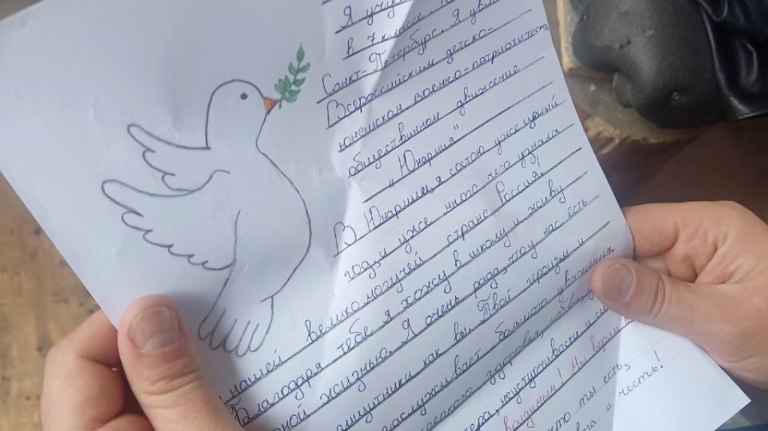 Я учу
в 7 классе
Санкт-Петербург. Я увле
Всероссийским детско-
юнешская военно-патриотическ
общественном движение
"Юнармия"
В Юнармии я состою уже целый
год, и уже много чего узнала
нашей великомогучей стране Россия.
Благодаря тебе я хожу в школу и живу
ной жизнью. Я очень рада, что у нас есть
защитники как вы. Твой героизм и
заслуживает большого уважения
крепкого здоровья
неустрашимости и
Мы верим
что ты есть,
и честь!